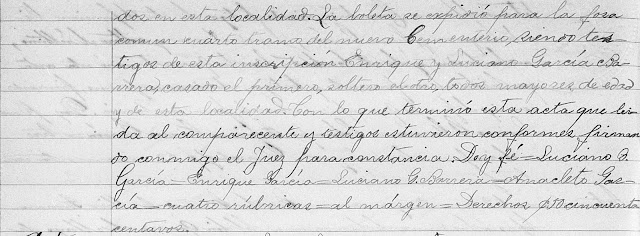 dos en esta localidad. La boleta se expidió para la fosa
comun cuarto tramo del nuevo Cementerio, siendo tes-
tigos de esta inscripción Enrique y Luciano García Ba-
rrera, casado el primero, soltero el otro, todos mayores de edad
y de esta localidad. Con lo que terminó esta acta que lei-
da al compareciente y testigos estuvieron conformes firman-
do conmigo el Juez para constancia. Doy fé = Luciano G.
García = Enrique García = Luciano G. Barrera = Anacleto Gar-
cía = cuatro rúbricas = al márgen = Derechos $0.50 cincuenta
centavos.